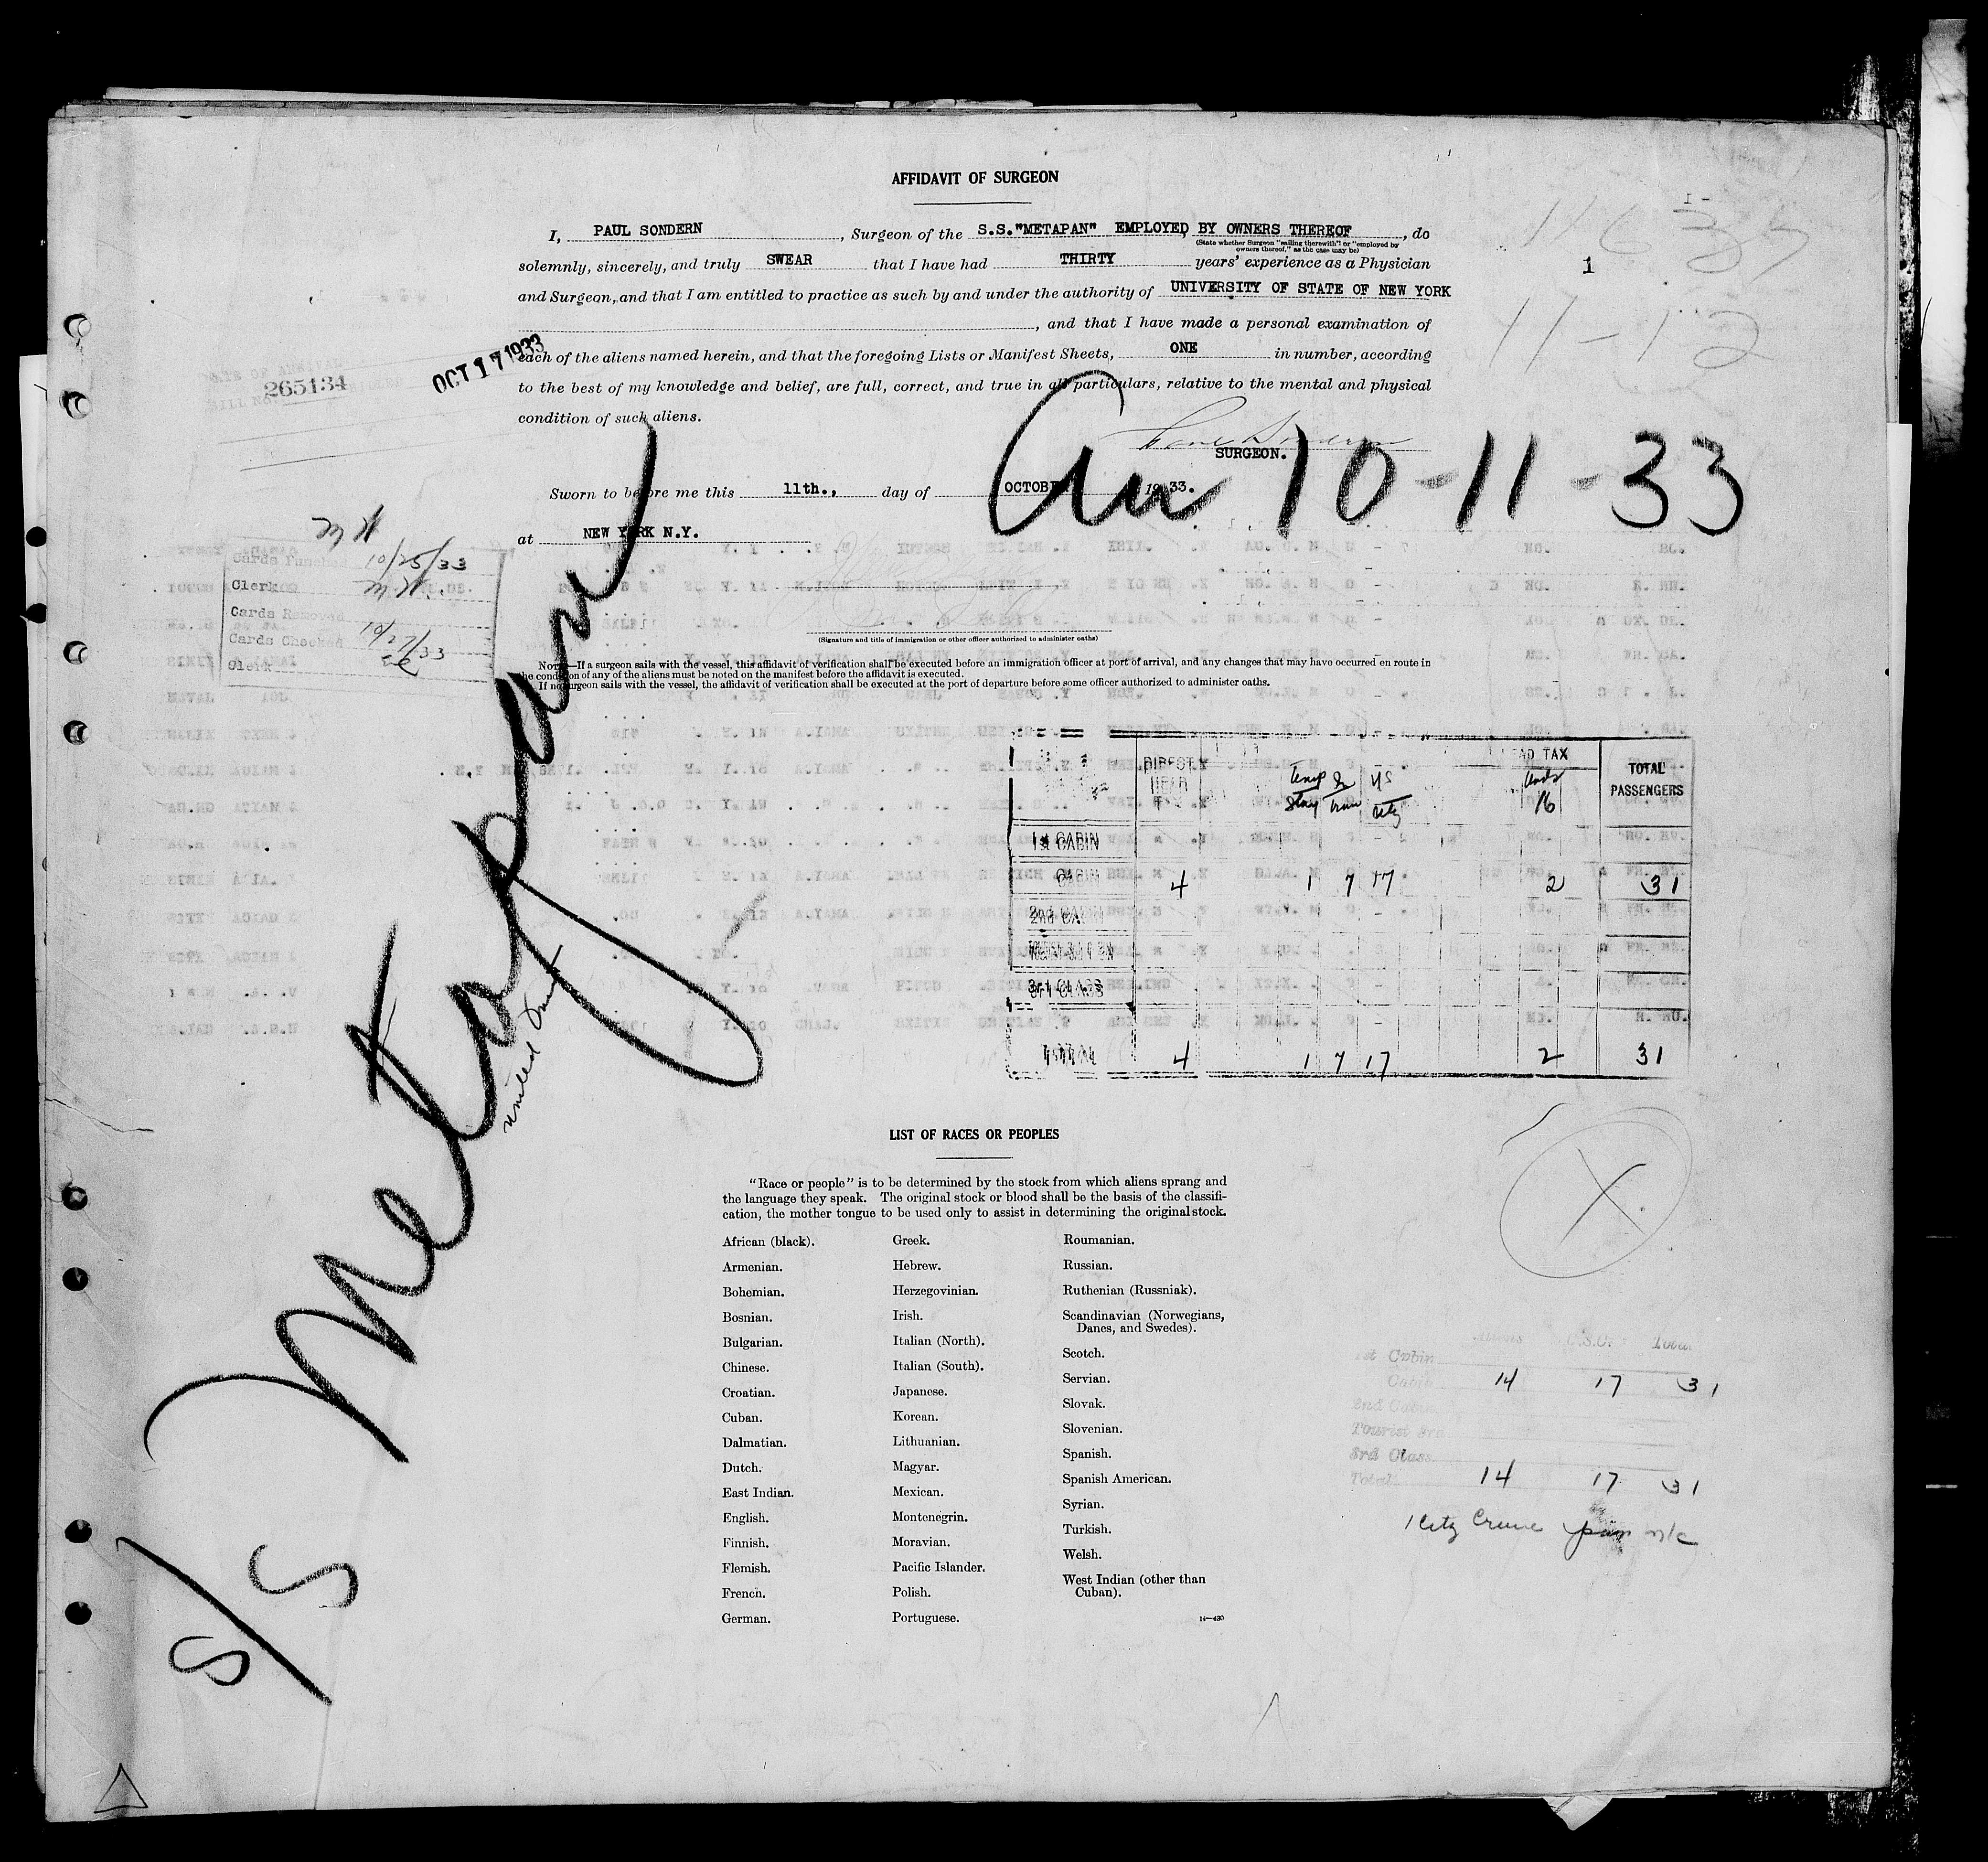 AFFIDAVIT OF SURGEON
I, PAUL SONDERN, Surgeon of the S.S."METAPAN" EMPLOYED BY OWNERS THEREOF, do
(State whether Surgeon "sailing therewith" or "employed by
owners thereof," as the case may be)
solemnly, sincerely, and truly SWEAR that I have had THIRTY years' experience as a Physician
1
and Surgeon, and that I am entitled to practice as such by and under the authority of UNIVERSITY OF STATE OF NEW YORK
, and that I have made a personal examination of
11-12
each of the aliens named herein, and that the foregoing Lists or Manifest Sheets, ONE in number, according
OCT 17 1933
265134
to the best of my knowledge and belief, are full, correct, and true in all particulars, relative to the mental and physical
condition of such aliens.
Paul Sondern
SURGEON.
Arr 10-11-33
Sworn to before me this 11th., day of OCTOBER 1933.
at NEW YORK N.Y.
MH
Cards Punched 10/25/33
Clerk MH.
Cards Removed
Cards Checked 10/27/33
Clerk
(Signature and title of immigration or other officer authorized to administer oaths)
NOTE.—If a surgeon sails with the vessel, this affidavit of verification shall be executed before an immigration officer at port of arrival, and any changes that may have occurred en route in
the condition of any of the aliens must be noted on the manifest before the affidavit is executed.
If no surgeon sails with the vessel, the affidavit of verification shall be executed at the port of departure before some officer authorized to administer oaths.
S/S Metapan
United Fruit
DIRECT HELD
Temp Stay
Tr
US Citz
HEAD TAX
Under 16
TOTAL PASSENGERS
1st CABIN
CABIN 4 1 7 17 2 31
2nd CA.
3rd CLASS
TOTAL 4 1 7 17 2 31
LIST OF RACES OR PEOPLES
"Race or people" is to be determined by the stock from which aliens sprang and
the language they speak. The original stock or blood shall be the basis of the classifi-
cation, the mother tongue to be used only to assist in determining the original stock.
African (black).
Armenian.
Bohemian.
Bosnian.
Bulgarian.
Chinese.
Croatian.
Cuban.
Dalmatian.
Dutch.
East Indian.
English.
Finnish.
Flemish.
French.
German.
Greek.
Hebrew.
Herzegovinian.
Irish.
Italian (North).
Italian (South).
Japanese.
Korean.
Lithuanian.
Magyar.
Mexican.
Montenegrin.
Moravian.
Pacific Islander.
Polish.
Portuguese.
Roumanian.
Russian.
Ruthenian (Russniak).
Scandinavian (Norwegians,
Danes, and Swedes).
Scotch.
Servian.
Slovak.
Slovenian.
Spanish.
Spanish American.
Syrian.
Turkish.
Welsh.
West Indian (other than
Cuban).
14—430
Aliens U.S.C. Total
1st Cabin
Cabin 14 17 31
2nd Cabin
Tourist 3rd
3rd Class
Total 14 17 31
1 Citz Cruise